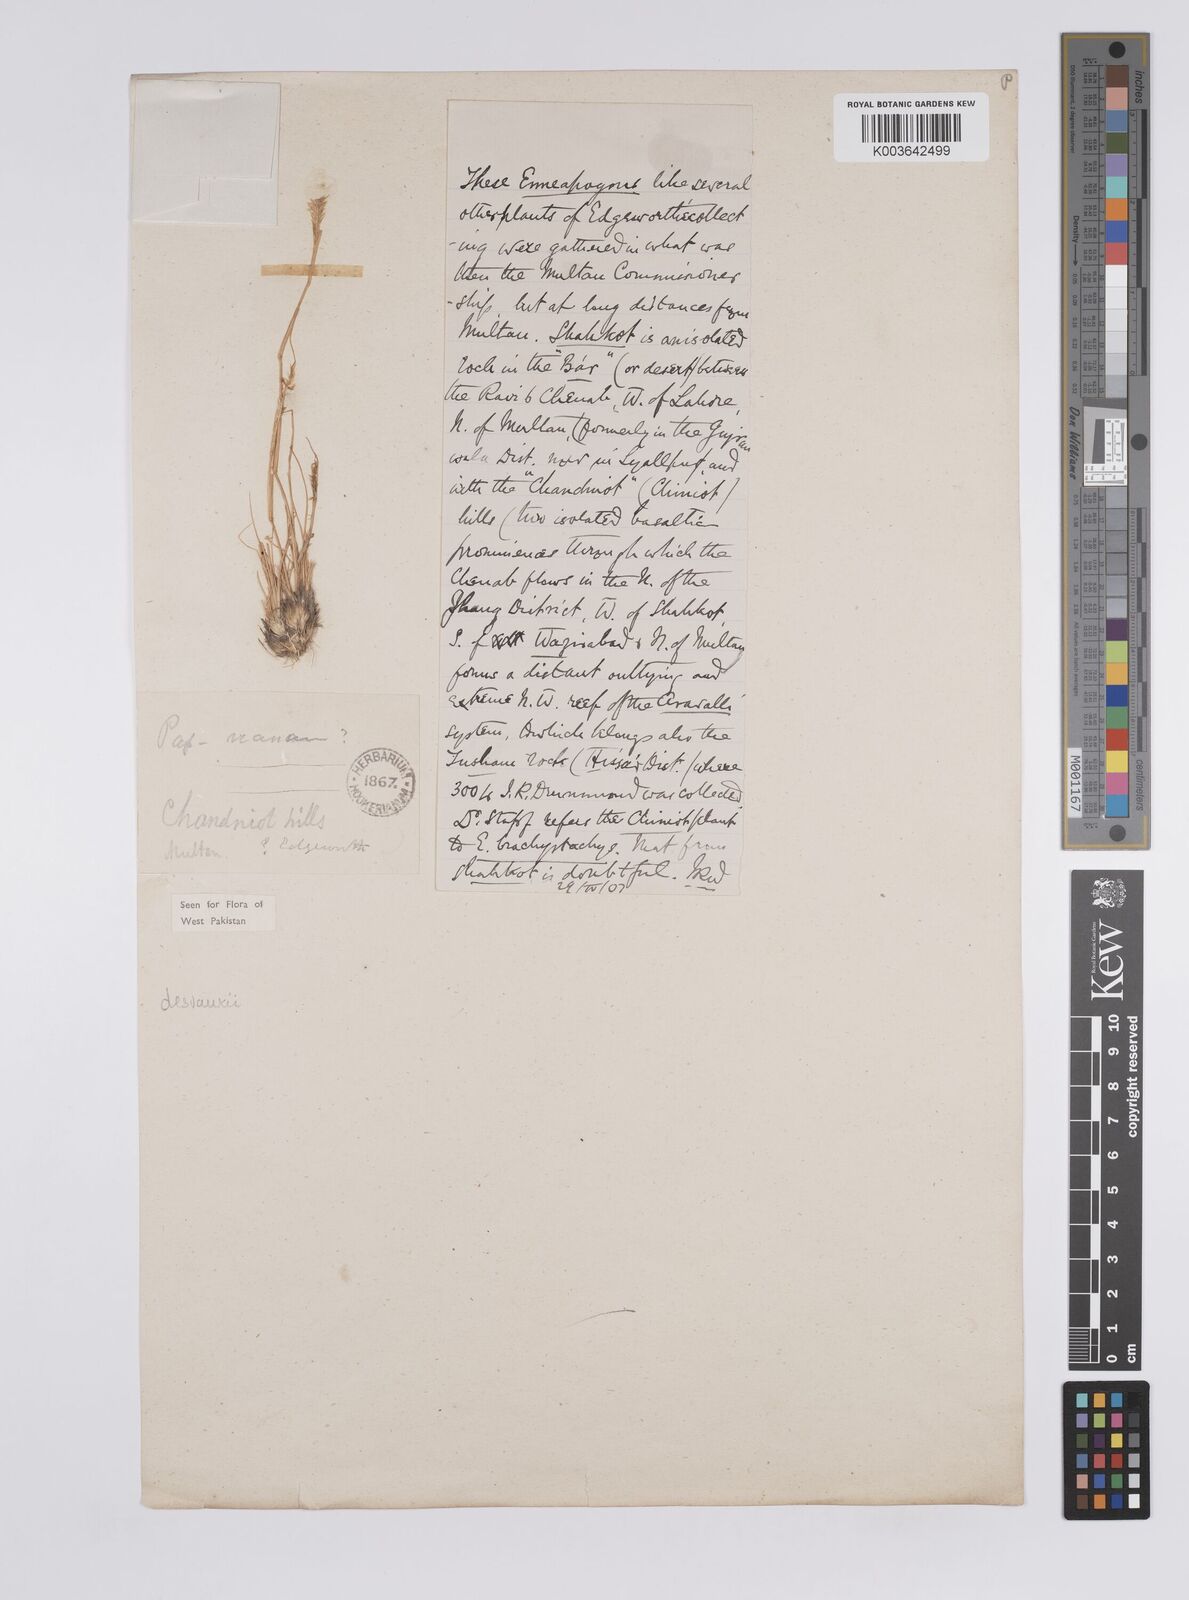 ROYAL BOTANIC GARDENS KEW
K003642499
P
These Enneapogons like several
other plants of Edgeworth's collect
-ing were gathered in what was
then the Multan Commissioner
-ship, but at long distances from
Multan. Shahkot is an isolated
rock in the "Bár" (or desert) between
the Ravi & Chenab, W. of Lahore,
N. of Multan, (formerly in the Gujran
wala Dist. now in Lyallpur, and
with the "Chandniot" (Chiniot)
hills (two isolated basaltic
prominences through which the
Chenab flows in the N. of the
Jhang District, W. of Shahkot,
S. of Wazirabad & N. of Multan
forms a distant outlying and
extreme N.W. reef of the Aravalli
system, to which belongs also the
Tusham rock (Hissár Dist.) where
300 J.R. Drummond was collected.
Dr. Stapf refers the Chiniot plant
to E. brachystachys. That from
Shahkot is doubtful. JRD
29/ /07
Pap- nanum?
HERBARIUM
1867.
HOOKERIANUM
Chandniot hills
Multan. Edgeworth
Seen for Flora of
West Pakistan
desvauxii
inches
Density
Don Williams
M001167
Kew
Royal Botanic Gardens
copyright reserved
0 1 2 3 4 5 6 7 8 9 10
cm